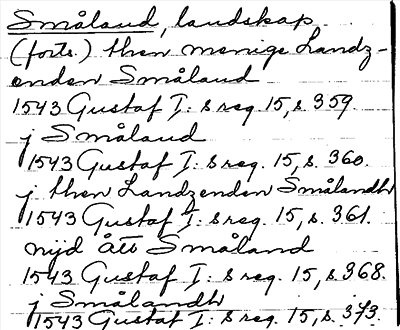 Småland, landskap
(forts.) then menige Landz-
enden Småland
1543 Gustaf I:s reg. 15, s. 359.
j Småland
1543 Gustaf I:s reg. 15, s. 360.
j then Landzenden Smålandh
1543 Gustaf I:s reg. 15, s. 361.
nijd ått Småland
1543 Gustaf I:s reg. 15, s. 368.
j Smålandh
1543 Gustaf I:s reg. 15, s. 373.